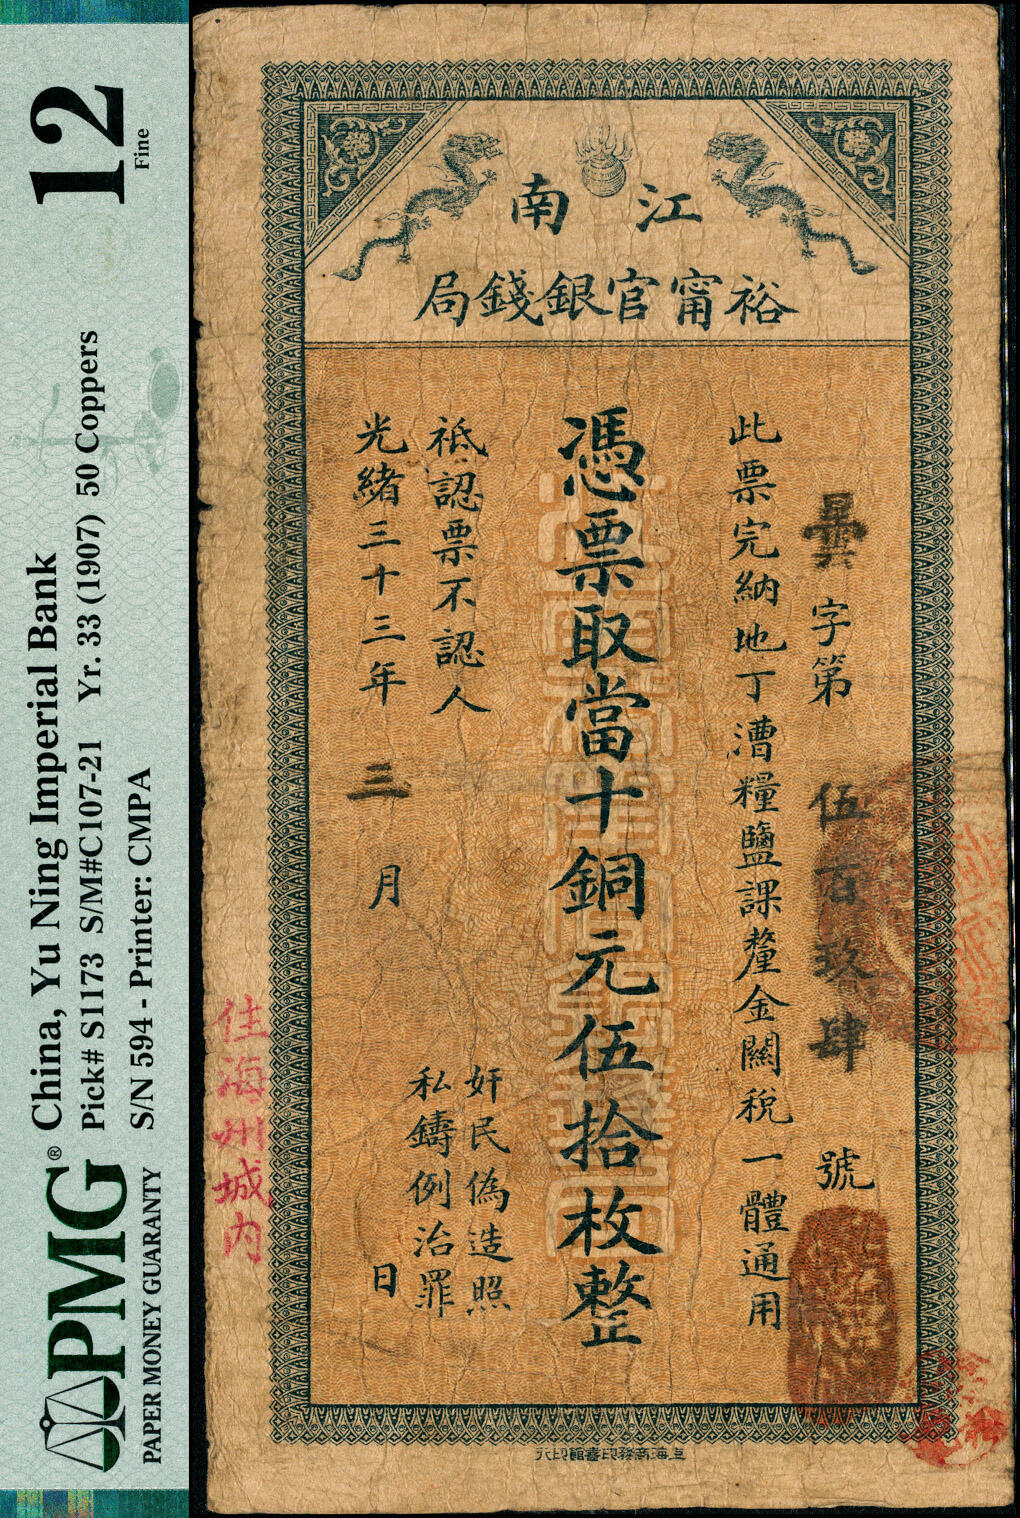 PMG®
PAPER MONEY GUARANTY
China, Yu Ning Imperial Bank
Pick# S1173 S/M#C107-21 Yr. 33 (1907) 50 Coppers
S/N 594 - Printer: CMPA
12
Fine
江南
裕甯官銀錢局
字第伍百玖肆號
此票完納地丁漕糧鹽課釐金關稅一體通用
憑票取當十銅元伍拾枚整
祗認票不認人
光緒三十三年三月日
奸民偽造照
私鑄例治罪
上海商務印書館印行
住海州城内